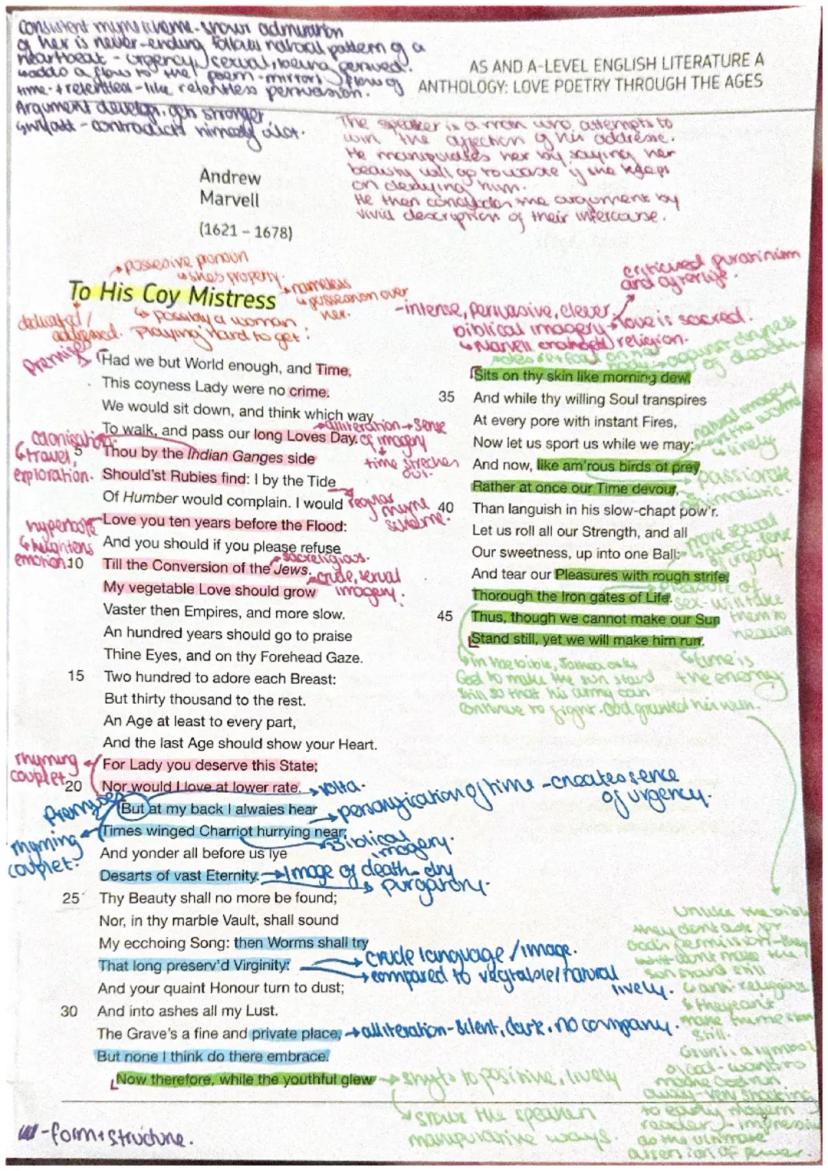 consistent rhyme scheme - shows admiration
of her is never-ending follow natural pattern of a
heartbeat - urgency, sexual, being
adds a flow to the poem - mirrors flow of
time + relentless - like relentless persuasion.
Argument develop, gets stronger
contradicts himself alot.
AS AND A-LEVEL ENGLISH LITERATURE A
ANTHOLOGY: LOVE POETRY THROUGH THE AGES
The speaker is a man who attempts to
win the affection of his addresse.
He manipulates her by saying her
beauty will go to waste if she keeps
on denying him.
He then concludes the argument by
vivid description of their intercourse.
Andrew
Marvell
(1621 – 1678)
possesive pronoun
shes property.
To His Coy Mistress
nameless
possession over
her.
dedicated/
addressed.
possibly a woman
playing hard to get!
-intense, persuasive, clever
criticised puratinism
and
biblical imagery
love is sacred.
Marvell religion.
Premise
Had we but World enough, and Time,
This coyness Lady were no crime.
We would sit down, and think which way
To walk, and pass our long Loves Day.
alliteration → sense
of imagery
time stretches
out.
colonisation
travel,
exploration.
5
Thou by the Indian Ganges side
Should'st Rubies find: I by the Tide
Of Humber would complain. I would
regular
rhyme
scheme.
hyperbole
heightens
emotion
Love you ten years before the Flood:
And you should if you please refuse
10
Till the Conversion of the Jews.
sacreligious.
My vegetable Love should grow
crude, sexual
imagery.
Vaster then Empires, and more slow.
An hundred years should go to praise
Thine Eyes, and on thy Forehead Gaze.
15
Two hundred to adore each Breast:
But thirty thousand to the rest.
An Age at least to every part,
And the last Age should show your Heart.
rhyming
couplet
For Lady you deserve this State;
20
Nor would I love at lower rate.
volta.
But at my back I alwaies hear
personification of time - creates sense
of urgency.
rhyming
couplet.
Times winged Charriot hurrying near;
Biblical
imagery.
And yonder all before us lye
Desarts of vast Eternity.
Image of death - dry
purgatory.
25
Thy Beauty shall no more be found;
Nor, in thy marble Vault, shall sound
My ecchoing Song: then Worms shall try
That long preserv'd Virginity:
crude language/image.
compared to vegetable/natural
lively.
And your quaint Honour turn to dust;
30
And into ashes all my Lust.
The Grave's a fine and private place,
alliteration - silent, dark, no company.
But none I think do there embrace.
Now therefore, while the youthful glew
shifts to positive, lively
shows the speaker
manipurative ways.
of death
Sits on thy skin like morning dew,
35
And while thy willing Soul transpires
At every pore with instant Fires,
natural imagery
lively
Now let us sport us while we may;
And now, like am'rous birds of prey,
passionate
animalistic.
Rather at once our Time devour,
40
Than languish in his slow-chapt pow'r.
Let us roll all our Strength, and all
Our sweetness, up into one Ball:
more sexual
And tear our Pleasures with rough strife,
Thorough the Iron gates of Life.
sex - will take
them to
heaven
45
Thus, though we cannot make our Sun
Stand still, yet we will make him run.
time is
the enemy
In the bible, Joshua asks
God to make the sun stand
still so that his army can
continue to fight. God granted his wish.
Unlike the bible
they dont ask for
God's permission - they
dont make the
sun stand still
anti religious
they can't
make the sun
still.
Sun is a symbol
of God - wants to
make God run
away - very shocking
to early modern
reader -
as the ultimate
assertion of power.
- form + structure.